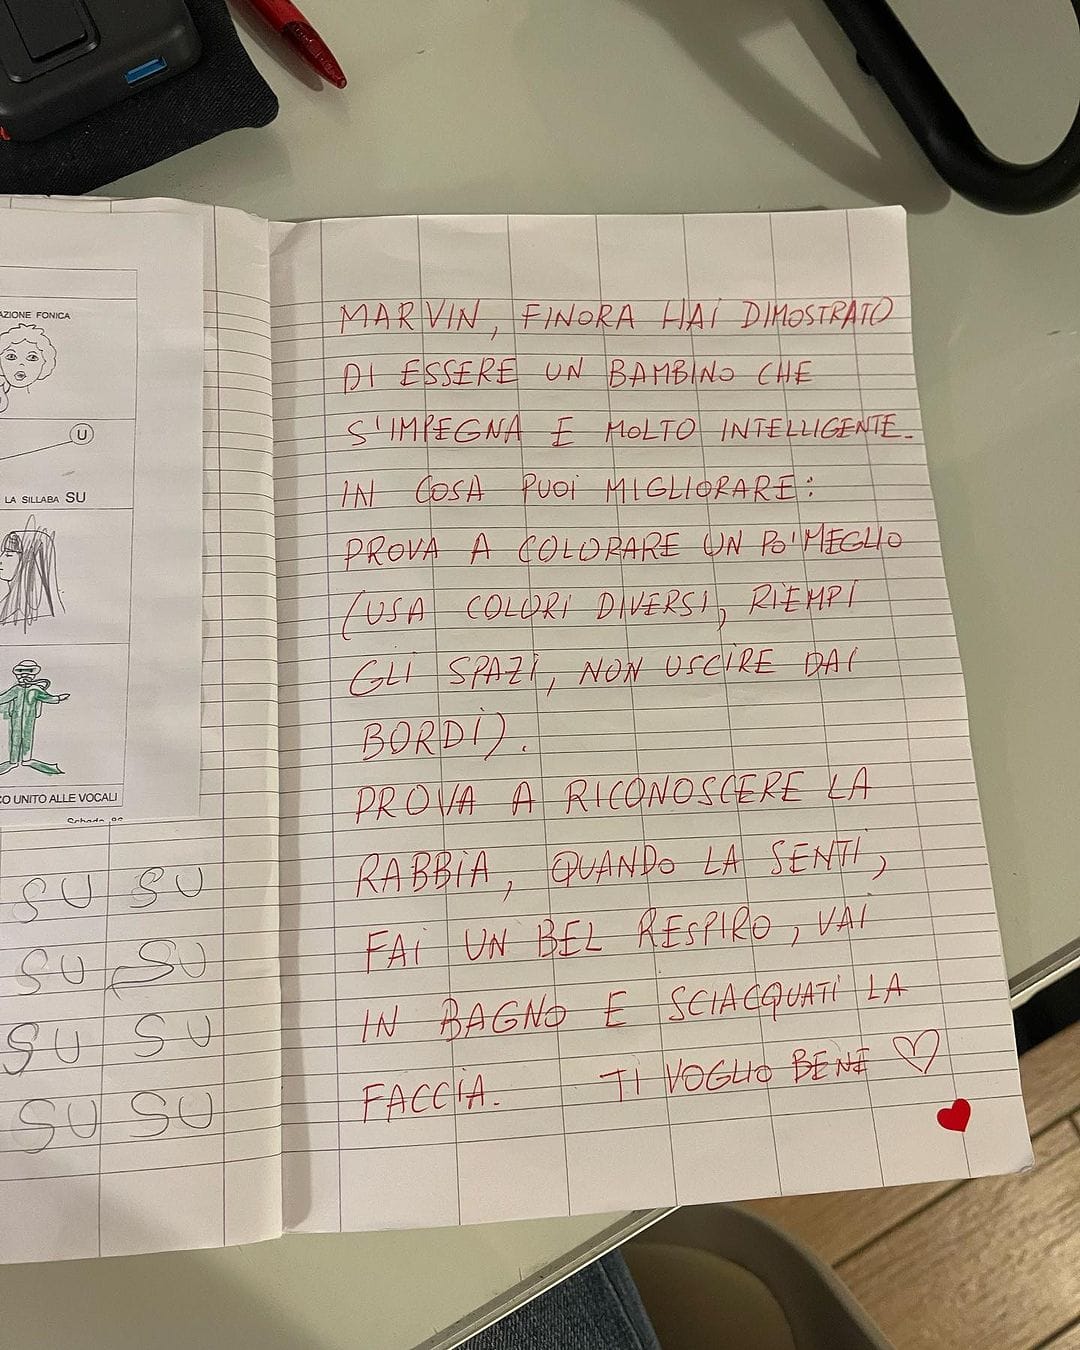 AZIONE FONICA
U
LA SILLABA SU
CO UNITO ALLE VOCALI
SU SU
SU SU
SU SU
SU SU
MARVIN, FINORA HAI DIMOSTRATO
DI ESSERE UN BAMBINO CHE
S'IMPEGNA E MOLTO INTELLIGENTE.
IN COSA PUOI MIGLIORARE:
PROVA A COLORARE UN PO' MEGLIO
(USA COLORI DIVERSI, RIEMPI
GLI SPAZI, NON USCIRE DAI
BORDI).
PROVA A RICONOSCERE LA
RABBIA, QUANDO LA SENTI,
FAI UN BEL RESPIRO, VAI
IN BAGNO E SCIACQUATI LA
FACCIA. TI VOGLIO BENE